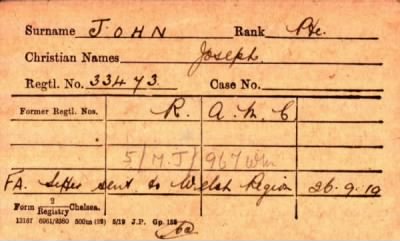 Surname JOHN Rank Pte.
Christian Names Joseph
Regtl. No. 33473 Case No.
Former Regtl. Nos. R. A. M. C
5/M.J/967
F.A. sent to Welsh Region 26.9.19
Form 2/Registry Chelsea.
13167 6961/2380 500m (19) 5/19 J.P. Gp. 158